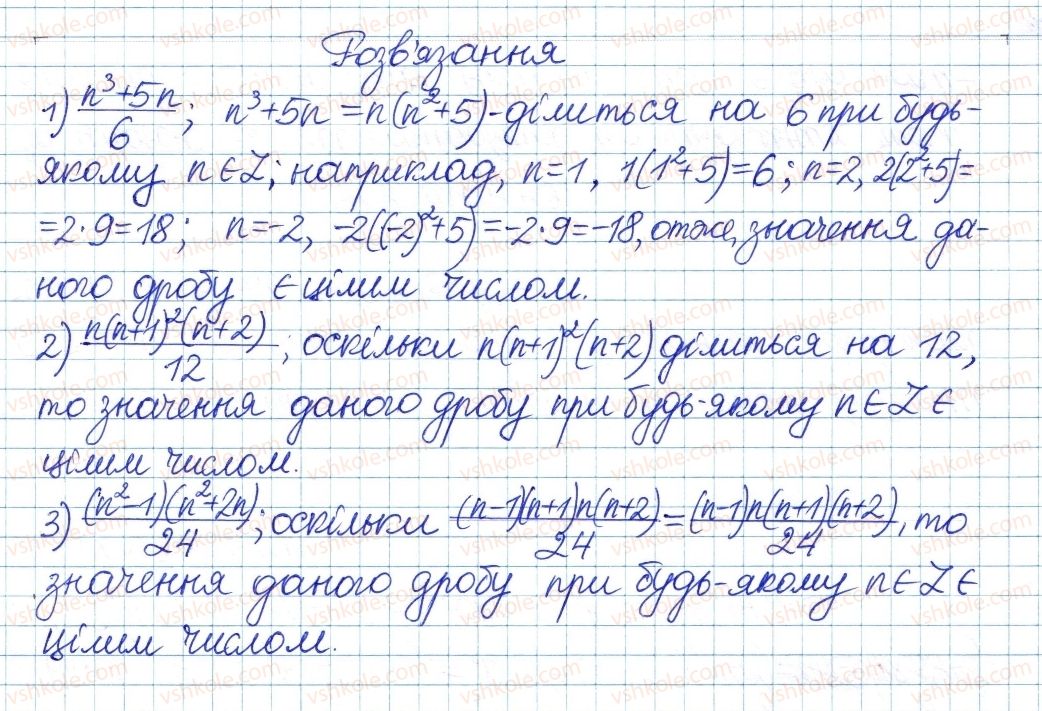 Розв'язання
1) (n³+5n)/6; n³+5n=n(n²+5)-ділиться на 6 при будь-
якому n∈Z; наприклад, n=1, 1(1²+5)=6; n=2, 2(2²+5)=
=2·9=18; n=-2, -2((-2)²+5)=-2·9=-18, отже, значення да-
ного дробу є цілим числом.
2) n(n+1)²(n+2)/12; оскільки n(n+1)²(n+2) ділиться на 12,
то значення даного дробу при будь-якому n∈Z є
цілим числом.
3) (n²-1)(n²+2n)/24; оскільки (n-1)(n+1)n(n+2)/24=(n-1)n(n+1)(n+2)/24, то
значення даного дробу при будь-якому n∈Z є
цілим числом.
vshkole.com